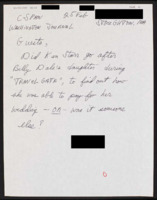 C-SPAN
WASHINGTON JOURNAL
Guests,
Did Ken Starr go after
Billy Dale's daughter during
"TRAVEL GATE", to find out how
she was able to pay for her
wedding - OR - was it someone
else?